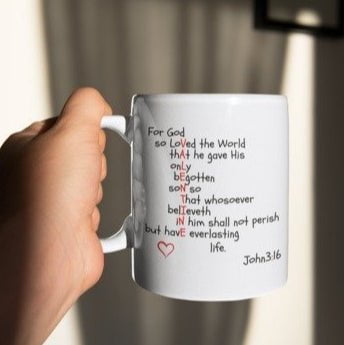 For God
so LoVed the World
thAt he gave His
onLy
bEgotten
soN so
That whosoever
belIeveth
iN him shall not perish
but havE everlasting
life.
John3:16